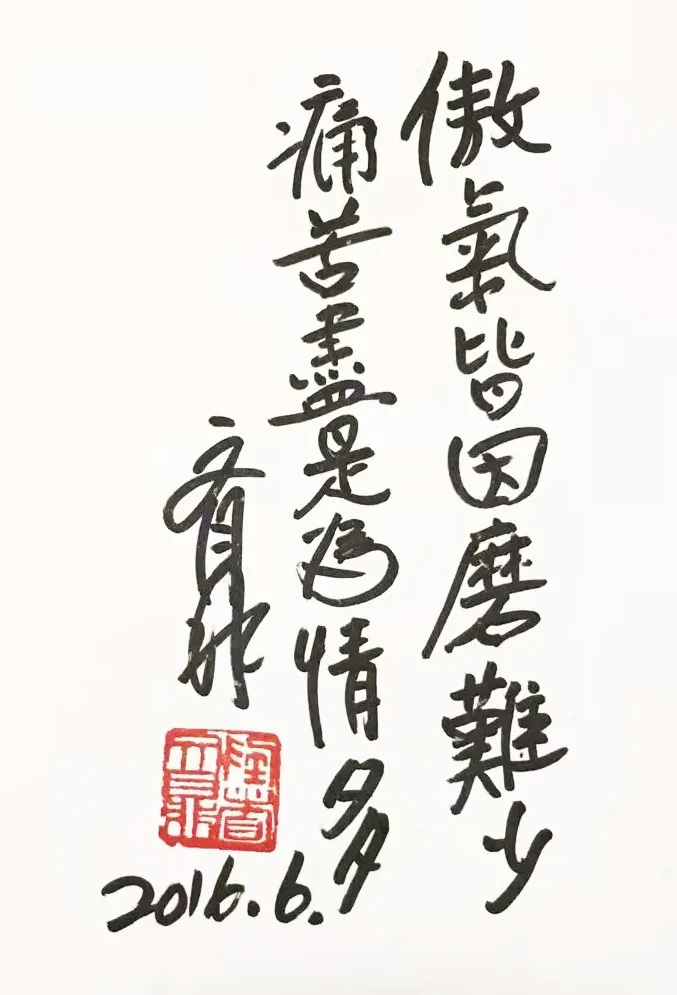 傲氣皆因磨難少
痛苦盡是為情多
2016.6.